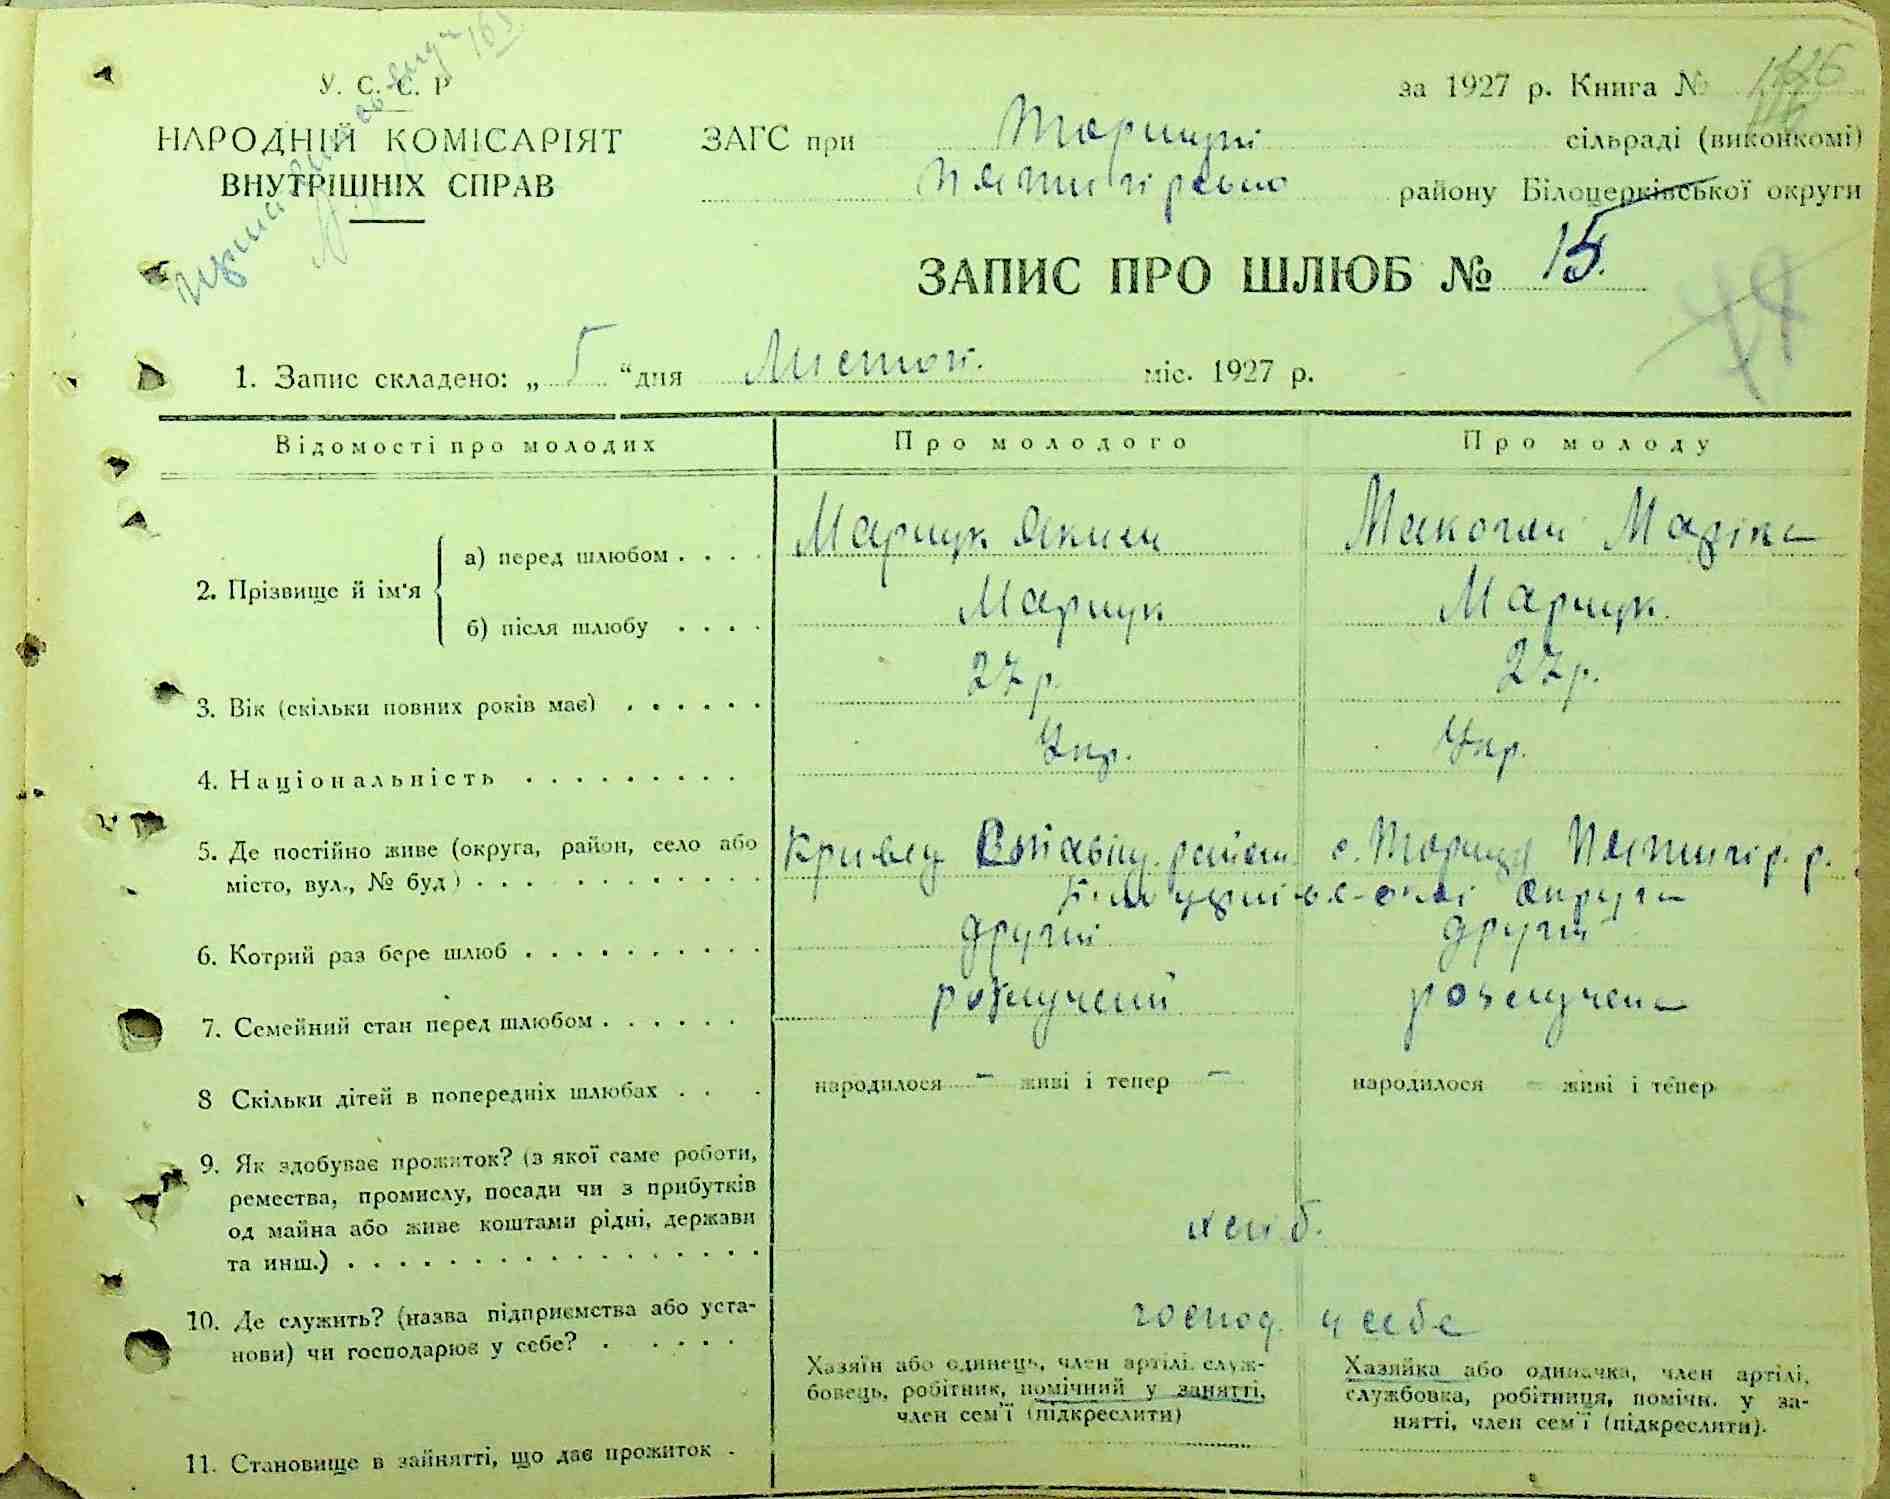 У. С. С. Р
за 1927 р. Книга №
НАРОДНІЙ КОМІСАРІЯТ
ВНУТРІШНІХ СПРАВ
ЗАГС при Торчиці сільраді (виконкомі)
району Білоцерківської округи
ЗАПИС ПРО ШЛЮБ № 15.
1. Запис складено: „ 5 “ дня Листоп. міс. 1927 р.
Відомості про молодих Про молодого Про молоду
2. Прізвище й ім'я
а) перед шлюбом . . . . Марчук Яким Макогон
б) після шлюбу . . . . Марчук Марчук.
3. Вік (скільки повних років має) . . . . . . 27 р. 27 р.
4. Національність . . . . . . . . . Укр. Укр.
5. Де постійно живе (округа, район, село або
місто, вул., № буд) . . . . . . . . . . . .
Кривец район с. Торчиця Пятигір. р.
округи
6. Котрий раз бере шлюб . . . . . . . . . . другий другий
7. Семейний стан перед шлюбом . . . . . . розлучений розлучена
8 Скільки дітей в попередніх шлюбах . . . народилося – живі і тепер – народилося – живі і тепер
9. Як здобуває прожиток? (з якої саме роботи,
ремества, промислу, посади чи з прибутків
од майна або живе коштами рідні, держави
та инш.) . . . . . . . . . . . . . . . . .
хліб.
10. Де служить? (назва підприємства або уста-
нови) чи господарює у себе? . . . . . .
господ. у себе
Хазяїн або одинець, член артілі, служ-
бовець, робітник, помічний у занятті,
член сем'ї (підкреслити)
Хазяйка або одиначка, член артілі,
службовка, робітниця, помічн. у за-
нятті, член сем'ї (підкреслити).
11. Становище в зайнятті, що дає прожиток .